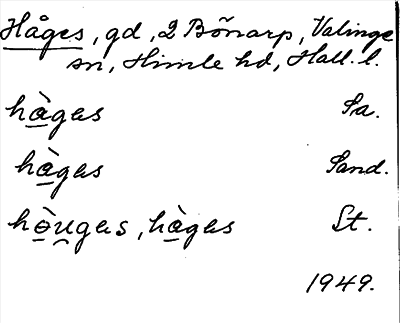 Håges, gd, 2 Bönarp, Valinge
sn, Himle hd, Hall. l.
hàgas Sa.
hàgas Sand.
hòugas, hàgas St.
1949.